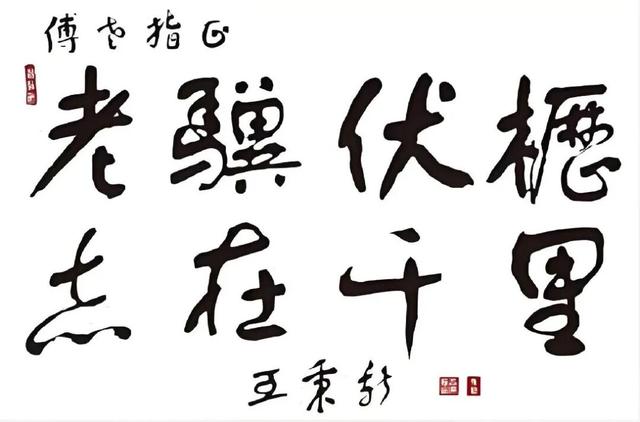 傅老指正
老驥伏櫪
志在千里
王秉新